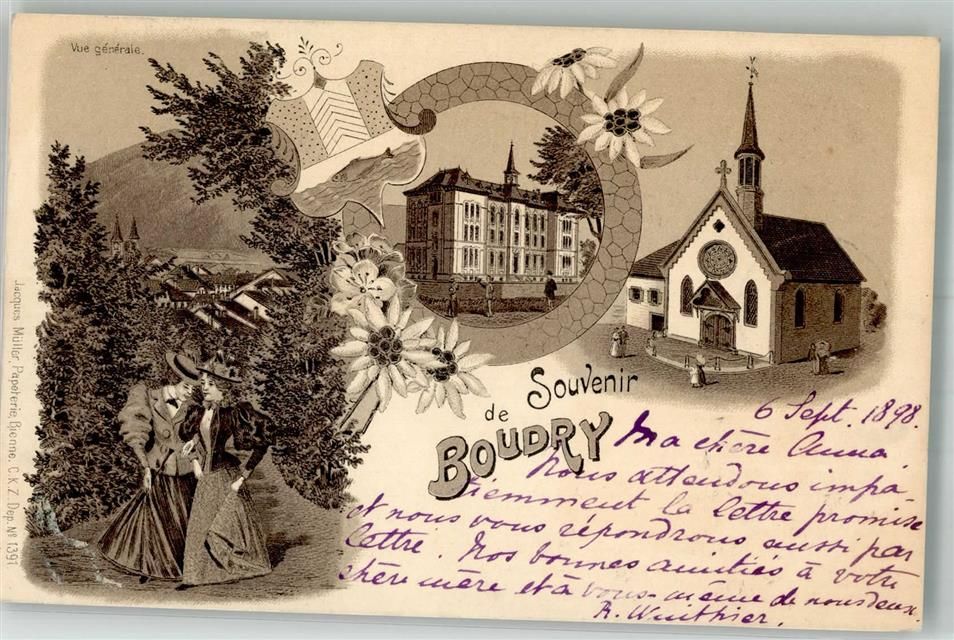 Vue générale.
Souvenir
de
BOUDRY
6 Sept. 1898.
Ma chère Anna
Nous attendons impa-
tiemment la lettre promise
et nous vous répondrons aussi par
lettre. Nos bonnes amitiés à votre
chère mère et à vous-même de nous deux.
Jacques Müller, Papeterie, Bienne. C.K.Z. Dep. № 1391